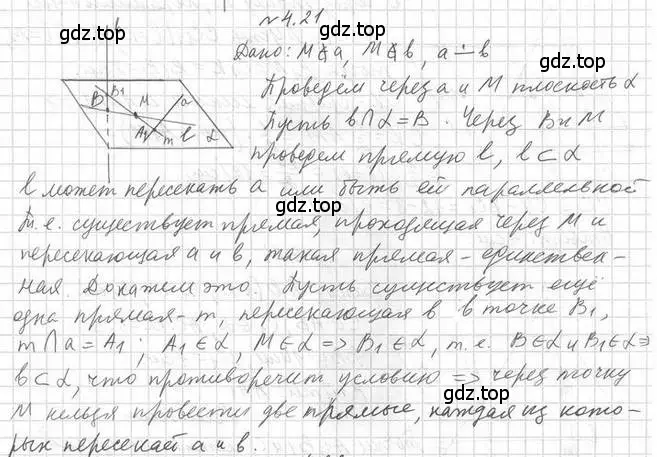 №4.21
gdz.top gdz.top
Дано: M∉a, M∉b, a∸b
Проведём через a и M плоскость α
Пусть b∩α=B. Через B и M
gdz.top
проведем прямую l, l⊂α
b B B₁ M a A₁ m l α
l может пересекать a или быть ей параллельной
gdz.top
Т.е. существует прямая, проходящая через M и
пересекающая a и b, такая прямая - единствен-
ная. Докажем это. Пусть существует ещё
одна прямая - m, пересекающая b в точке B₁,
m∩a=A₁; A₁∈α, M∈α => B₁∈α, т.е. B∈α и B₁∈α =>
b⊂α, что противоречит условию => через точку
M нельзя провести две прямые, каждая из кото-
gdz.top
рых пересекает a и b.